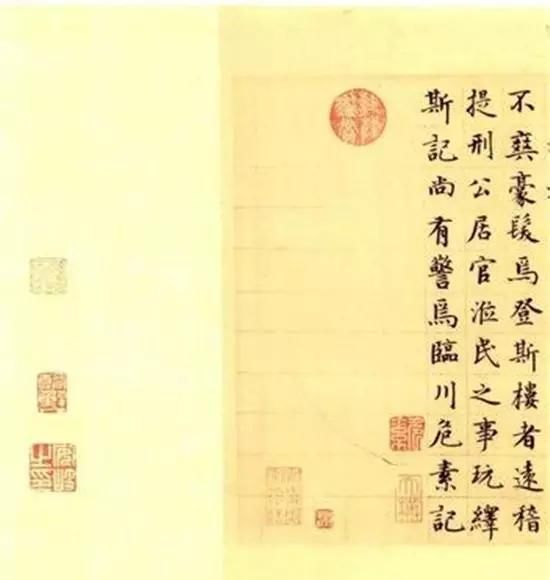 不爽豪髮焉登斯樓者遠稽
提刑公居官涖民之事玩繹
斯記尚有警焉臨川危素記